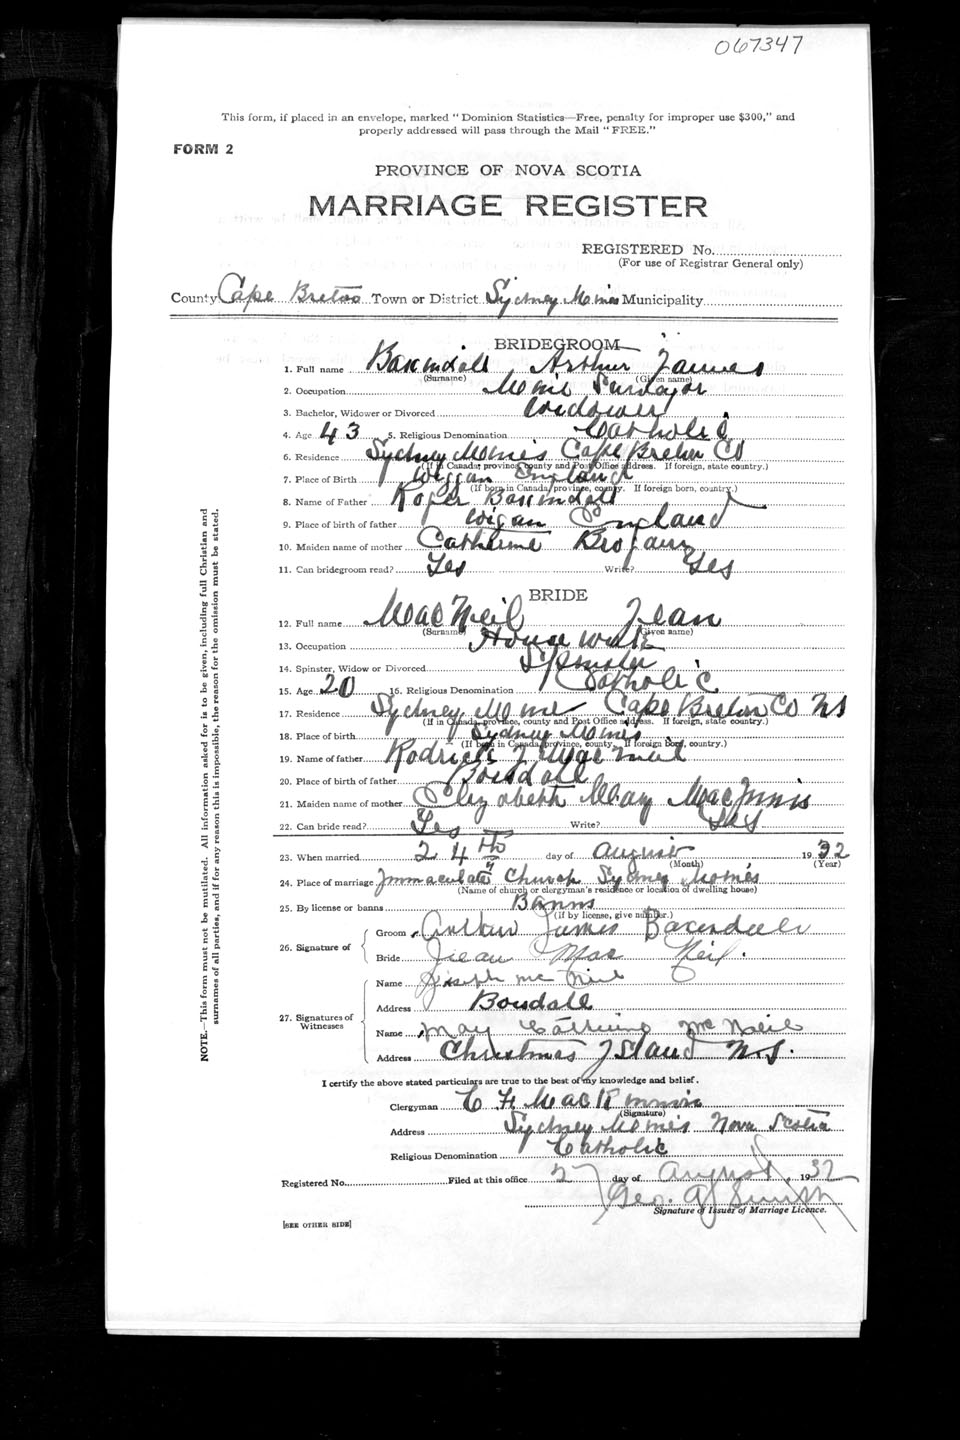 067347
This form, if placed in an envelope, marked "Dominion Statistics—Free, penalty for improper use $300," and
properly addressed will pass through the Mail "FREE."
FORM 2
PROVINCE OF NOVA SCOTIA
MARRIAGE REGISTER
REGISTERED No.
(For use of Registrar General only)
County Cape Breton Town or District Sydney Mines Municipality
BRIDEGROOM
1. Full name Baxendale Arthur James
(Surname) (Given name)
2. Occupation Mine Surveyor
3. Bachelor, Widower or Divorced Widower
4. Age 43 5. Religious Denomination Catholic
6. Residence Sydney Mines Cape Breton Co
(If in Canada, province, county and Post Office address. If foreign, state country.)
7. Place of Birth Wiggan England
(If born in Canada, province, county. If foreign born, country.)
8. Name of Father Roger Baxendale
9. Place of birth of father Wigan England
10. Maiden name of mother Catherine
11. Can bridegroom read? Yes Write? Yes
BRIDE
12. Full name MacNeil Jean
(Surname) (Given name)
13. Occupation House work
14. Spinster, Widow or Divorced Spinster
15. Age 20 16. Religious Denomination Catholic
17. Residence Sydney Mines Cape Breton Co NS
(If in Canada, province, county and Post Office address. If foreign, state country.)
18. Place of birth Sydney Mines
(If born in Canada, province, county. If foreign born, country.)
19. Name of father Rodrick J MacNeil
20. Place of birth of father Boisdall
21. Maiden name of mother Elizabeth May MacInnis
22. Can bride read? Yes Write? Yes
23. When married 24th day of August 1932
(Month) (Year)
24. Place of marriage Immaculate Church Sydney Mines
(Name of church or clergyman's residence or location of dwelling house)
25. By license or banns Banns
(If by license, give number.)
26. Signature of
Groom Arthur James Baxendale
Bride Jean Mac Neil.
27. Signatures of Witnesses
Name Joseph Mc Neil
Address Bousdall
Name May Catherine McNeil
Address Christmas Island N.S.
I certify the above stated particulars are true to the best of my knowledge and belief.
Clergyman C F MacKinnon
(Signature)
Address Sydney Mines Nova Scotia
Religious Denomination Catholic
Registered No. Filed at this office 27 day of August 1932
Geo. A Smith
Signature of Issuer of Marriage Licence.
[SEE OTHER SIDE]
NOTE.—This form must not be mutilated. All information asked for is to be given, including full Christian and
surnames of all parties, and if for any reason this is impossible, the reason for the omission must be stated.